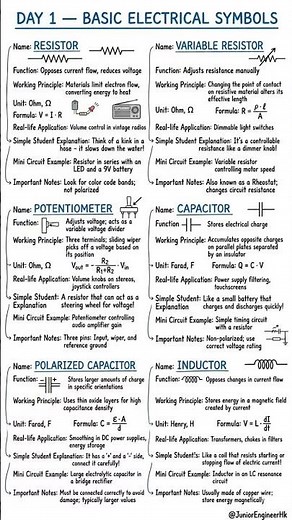 DAY 1 — BASIC ELECTRICAL SYMBOLS
Name: RESISTOR
Function: Opposes current flow, reduces voltage
Working Principle: Materials limit electron flow,
converting energy to heat
Unit: Ohm, Ω
Formula: V = I · R
Real-life Application: Volume control in vintage radios
Simple Student Explanation: Think of a kink in a
hose – it slows down the water!
Mini Circuit Example: Resistor in series with an
LED and a 9V battery
Important Notes: Look for color code bands;
not polarized
Name: VARIABLE RESISTOR
Function: Adjusts resistance manually
Working Principle: Changing the point of contact
on resistive material alters its
effective length
Unit: Ohm, Ω
Formula: R = ρ · ℓ / A
Real-life Application: Dimmable light switches
Simple Student Explanation: It's a controllable
resistance like a dimmer knob!
Mini Circuit Example: Variable resistor
controlling motor speed
Important Notes: Also known as a Rheostat;
changes circuit resistance
Name: POTENTIOMETER
Function: Adjusts voltage; acts as a
variable voltage divider
Working Principle: Three terminals; sliding wiper
picks off a voltage based
on its position
Unit: Ohm, Ω
Vout = R2 / R1 + R2 · Vin
Real-life Application: Volume knobs on stereos,
joystick controllers
Simple Student Explanation: A resistor that can act as a
steering wheel for voltage!
Mini Circuit Example: Potentiometer controlling
audio amplifier gain
Important Notes: Three pins: Input, wiper, and
reference ground
Name: CAPACITOR
Function: Stores electrical charge
Working Principle: Accumulates opposite charges
on parallel plates separated
by an insulator
Unit: Farad, F Formula: Q = C · V
Real-life Application: Power supply filtering,
touchscreens
Simple Student Explanation: Like a small battery that
charges and discharges quickly!
Mini Circuit Example: Simple timing circuit
with a resistor
Important Notes: Non-polarized; use
correct voltage rating
Name: POLARIZED CAPACITOR
Function: Stores larger amounts of charge
in specific orientations
Working Principle: Uses thin oxide layers for high
capacitance density
Unit: Farad, F Formula: C = ε · A / d
Real-life Application: Smoothing in DC power supplies,
energy storage
Simple Student Explanation: It has a '+' and a '-' side,
connect it carefully!
Mini Circuit Example: Large electrolytic capacitor in
a bridge rectifier
Important Notes: Must be connected correctly to avoid
damage; typically larger values
Name: INDUCTOR
Function: Opposes changes in current flow
Working Principle: Stores energy in a magnetic field
created by current
Unit: Henry, H Formula: V = L · dI / dt
Real-life Application: Transformers, chokes in filters
Simple Student's: Like a coil that resists starting or
stopping flow of electric current!
Mini Circuit Example: Inductor in an LC resonance
circuit
Important Notes: Usually made of copper wire;
store magnetic energy
@JuniorEngineerHk